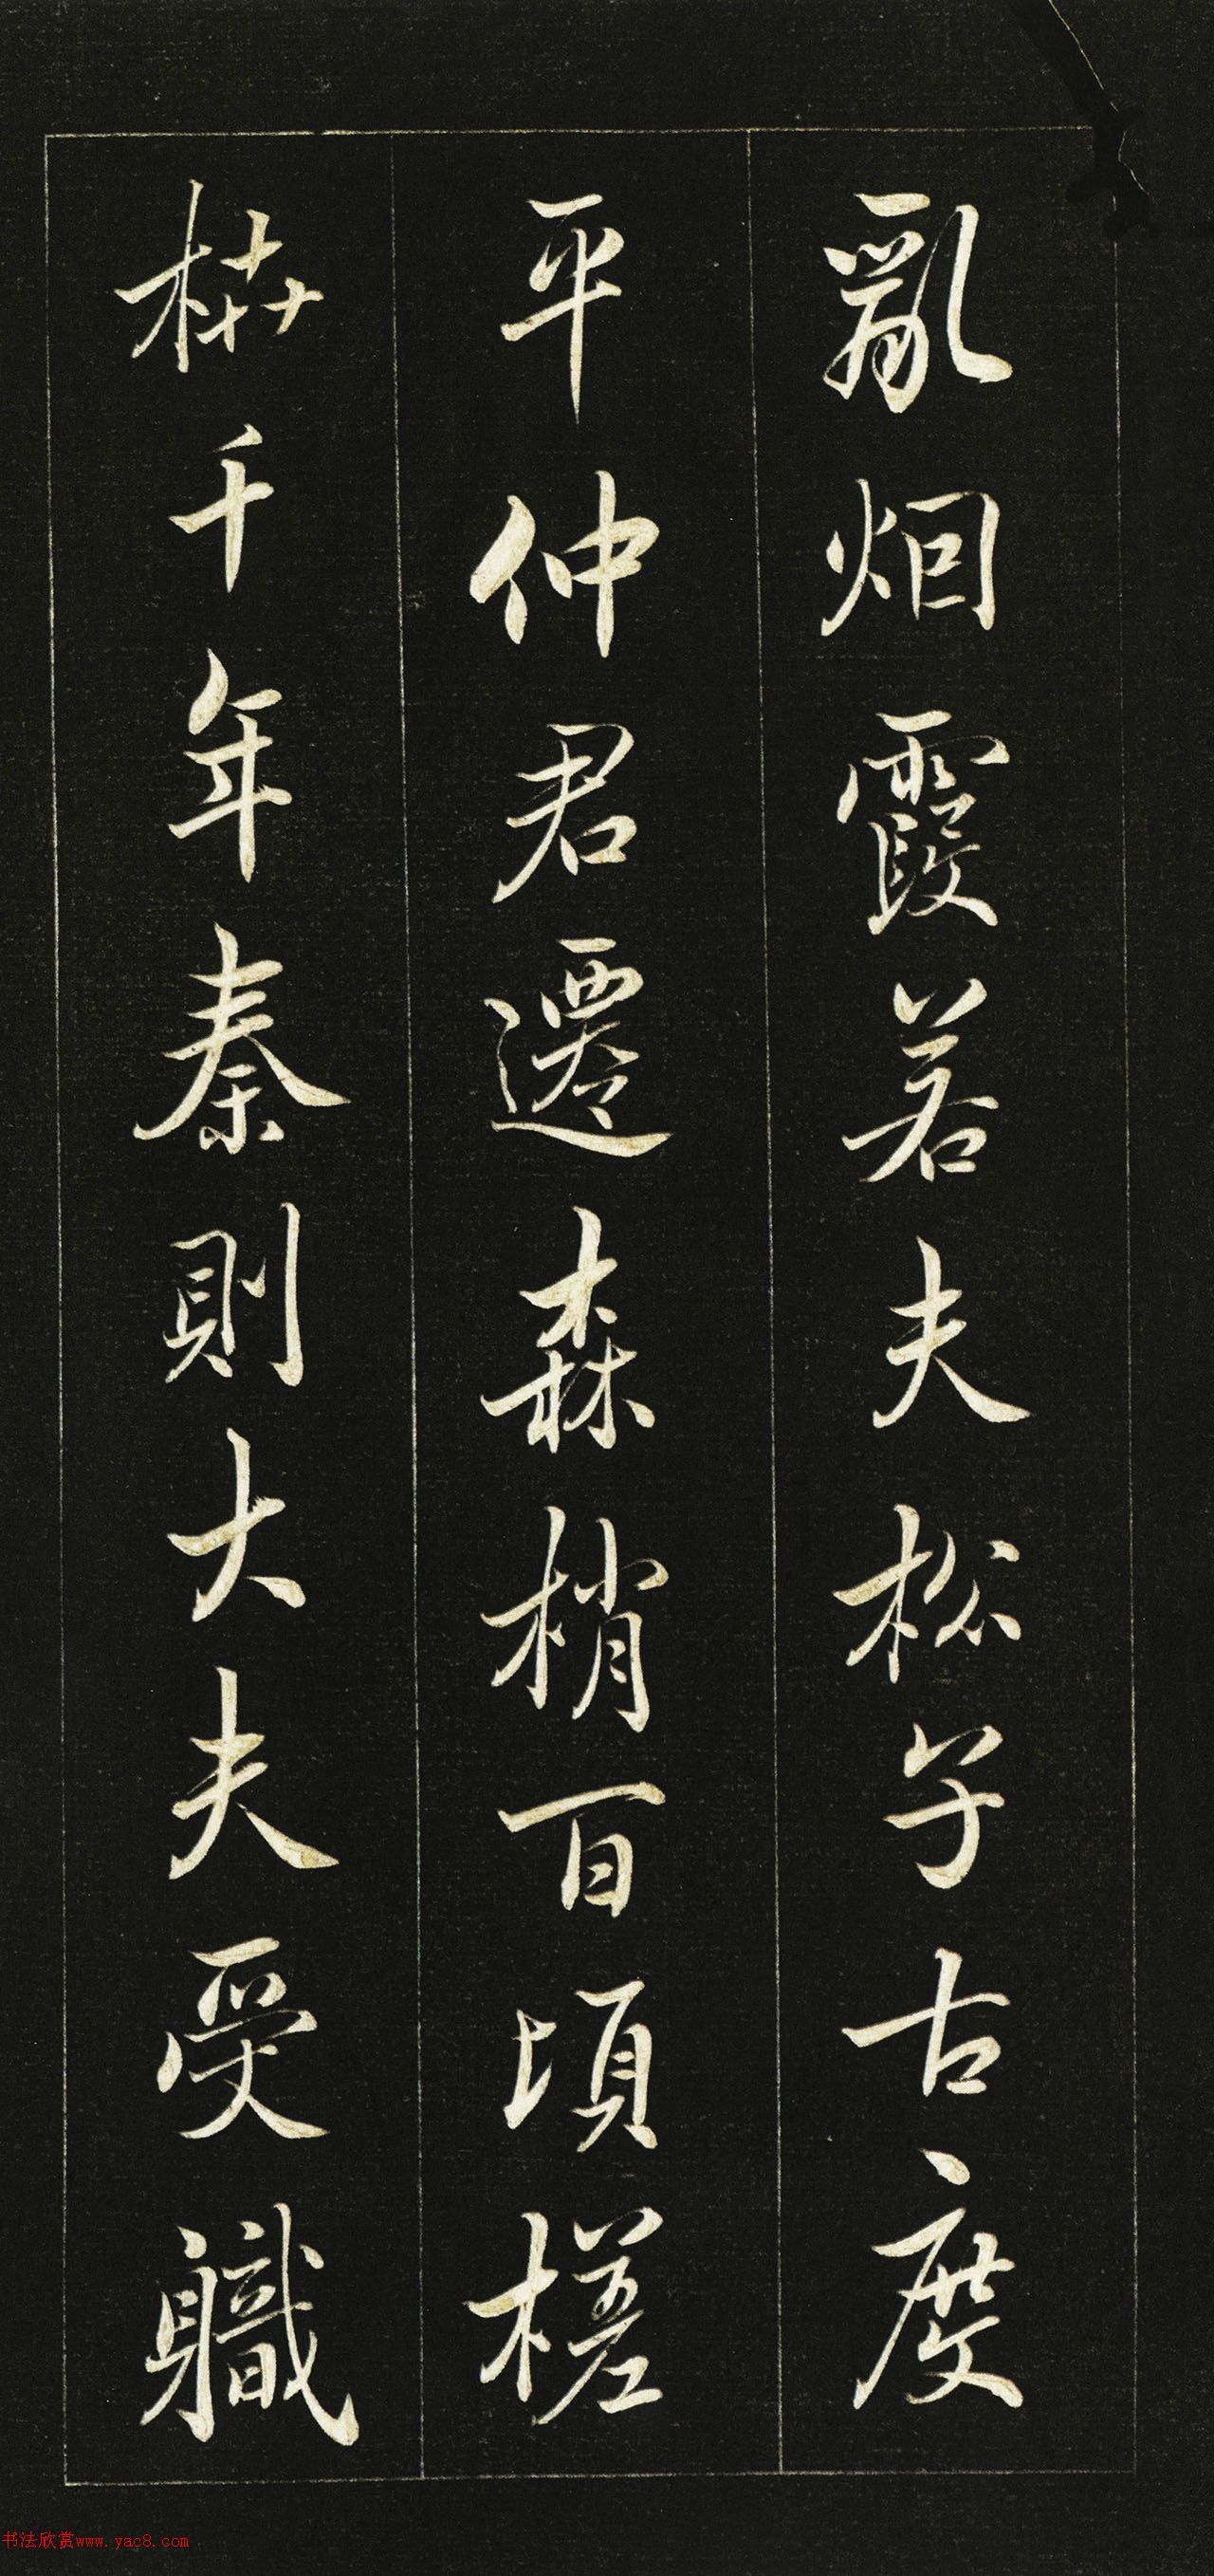 亂烟霞若夫松子古度
平仲君遷森梢百頃槎
枿千年秦則大夫受職
书法欣赏www.yac8.com